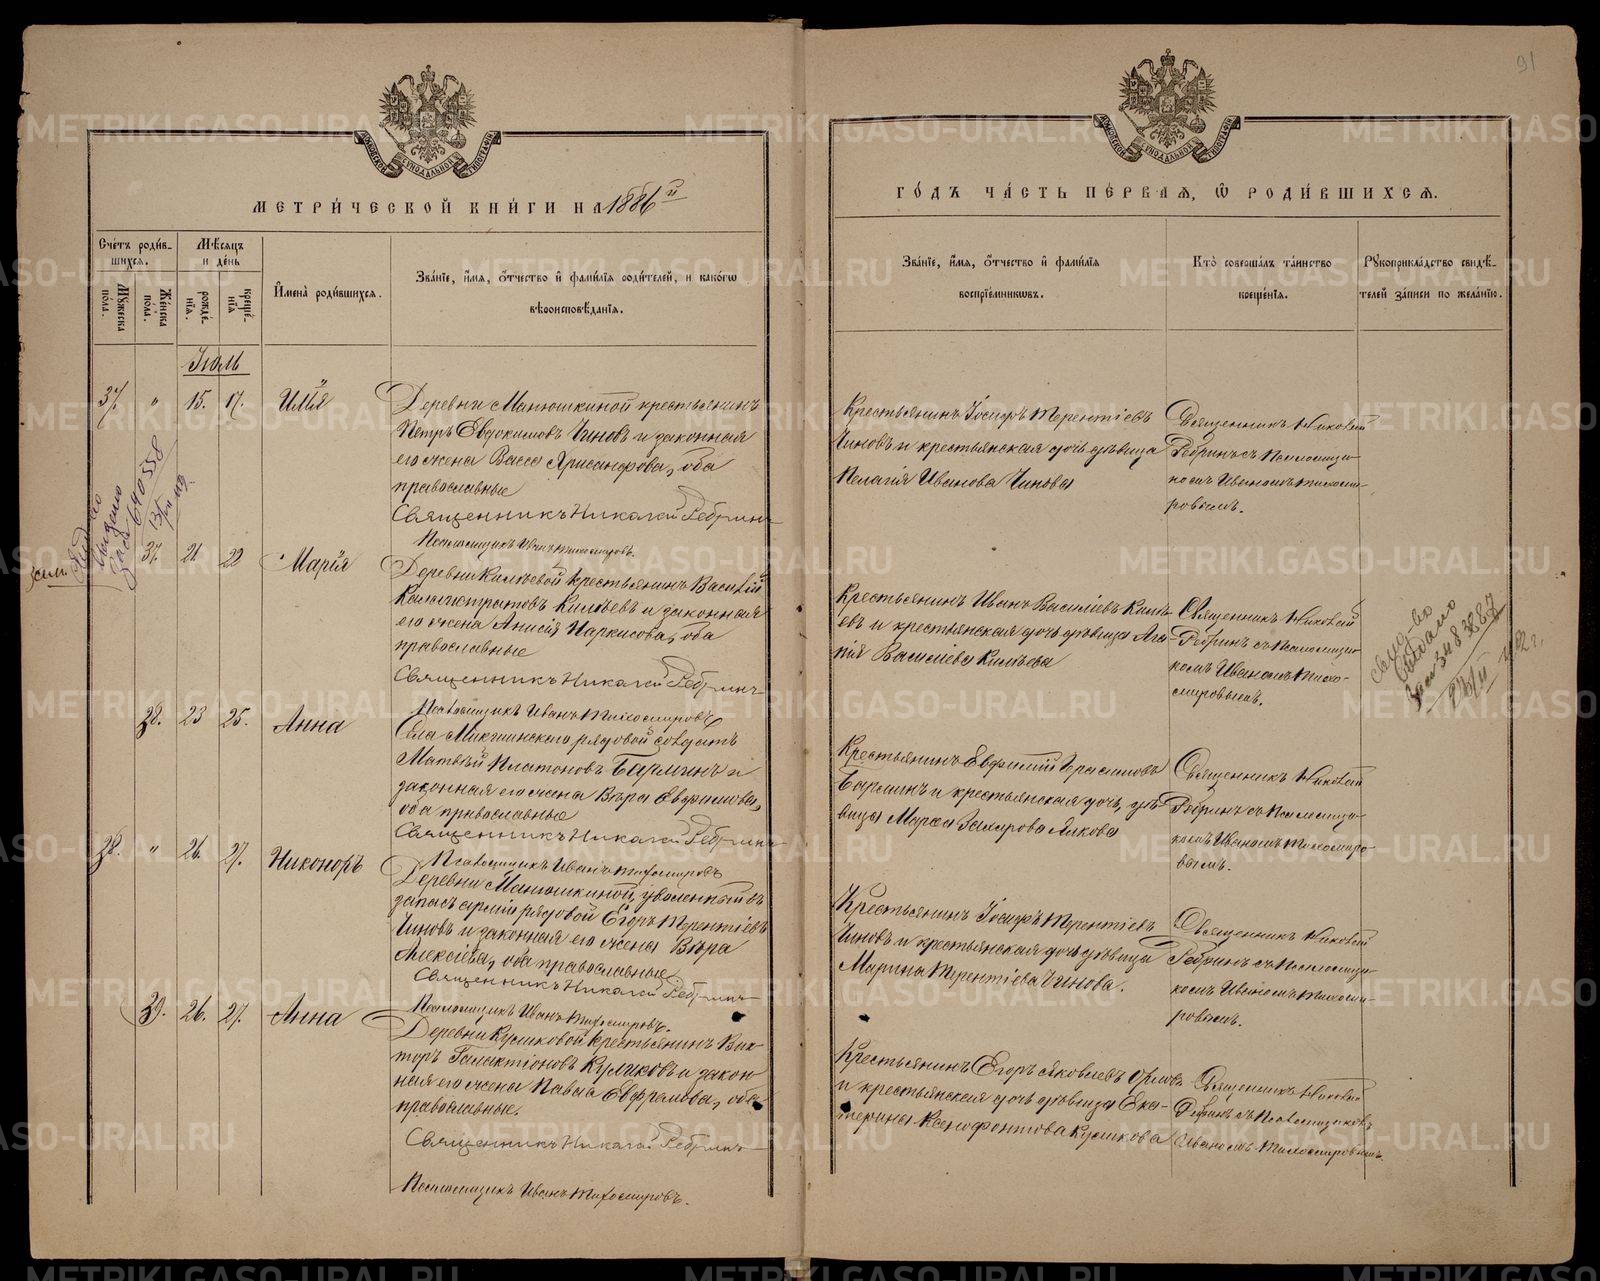 91
МЕТРИ́ЧЕСКОЙ КНИ́ГИ НА 1886й
ГО́ДЪ ЧА́СТЬ ПЕ́РВАЯ, Ѿ РОДИ́ВШИХСЯ.
Сче́тъ роди́в-
шихся.
Му́жеска
пола.
Же́нска
по́ла.
Мѣ́сяцъ
и де́нь
рожде́-
нїя.
креще́-
нїя
И҆мена̀ роди́вшихся.
Зва́нїе, и҆́мя, ѻ҆́тчество и҆ фами́лїя родителей, и како́гѡ
вѣроисповѣ́данїя.
Зва́нїе, и҆́мя, ѻ҆́тчество и҆ фами́лїя
воспрїе́мниковъ.
Кто̀ соверша́лъ та́инство
креще́нїя.
Рꙋкоприкла́дство свидѣ́-
телей за́писи по жела́нїю.
Іюль
37. " 15. 17. Илія
Деревни Манюшкиной крестьянинъ
Петръ Евдокимовъ Чиновъ и законная
его жена Васса Хрисанфова, оба
православные
Священникъ Николай Ребринъ
Псаломщикъ Иванъ Тихомировъ.
Крестьянинъ Іосифъ Терентіевъ
Чиновъ и крестьянская дочь дѣвица
Пелагія Иванова Чинова
Священникъ Николай
Ребринъ съ Псаломщи-
комъ Иваномъ Тихоми-
ровымъ.
37. 21 22 Марія
Деревни Килѣевой крестьянинъ Василій
Каллистратовъ Килѣевъ и законная
его жена Анисія Наркисова, оба
православные
Священникъ Николай Ребринъ
Псаломщикъ Иванъ Тихомировъ
Крестьянинъ Иванъ Василіевъ Килѣ-
евъ и крестьянская дочь дѣвица Ага-
пія Василіева Килѣева
Священникъ Николай
Ребринъ съ Псаломщи-
комъ Иваномъ Тихо-
мировымъ.
38. 23 25. Анна
Села Микшинскаго рядовой солдатъ
Матвѣй Платоновъ Бармин и
законная его жена Вѣра Евфимова,
оба православные
Священникъ Николай Ребринъ
Псаломщикъ Иванъ Тихомировъ
Крестьянинъ Евфимій
Барминъ и крестьянская дочь, дѣ-
вица Марѳа Захарова
Священникъ Николай
Ребринъ съ Псаломщи-
комъ Иваномъ Тихомиро-
вымъ.
38. " 26. 27. Никоноръ
Деревни Манюшкиной, уволенный въ
запасъ арміи рядовой Егоръ Терентіевъ
Чиновъ и законная его жена Вѣра
Алексіева, оба православные
Священникъ Николай Ребринъ
Псаломщикъ Иванъ Тихомировъ.
Крестьянинъ Іосифъ Терентіевъ
Чиновъ и крестьянская дочь дѣвица
Марина Терентіева Чинова.
Священникъ Николай
Ребринъ съ Псаломщи-
комъ Иваномъ Тихоми-
ровымъ.
39. 26. 27. Анна
Деревни Куликовой крестьянинъ Вик-
торъ Галактіоновъ Куликовъ и закон-
ная его жена Павла Евфремова, оба
православные.
Священникъ Николай Ребринъ
Псаломщикъ Иванъ Тихомировъ.
Крестьянинъ Егоръ Яковлевъ Орловъ
и крестьянская дочь дѣвица Ека-
терина Ксенофонтова Куликова
Священникъ Николай
Ребринъ съ Псаломщикомъ
Иваномъ Тихомировымъ.
METRIKI.GASO-URAL.RU